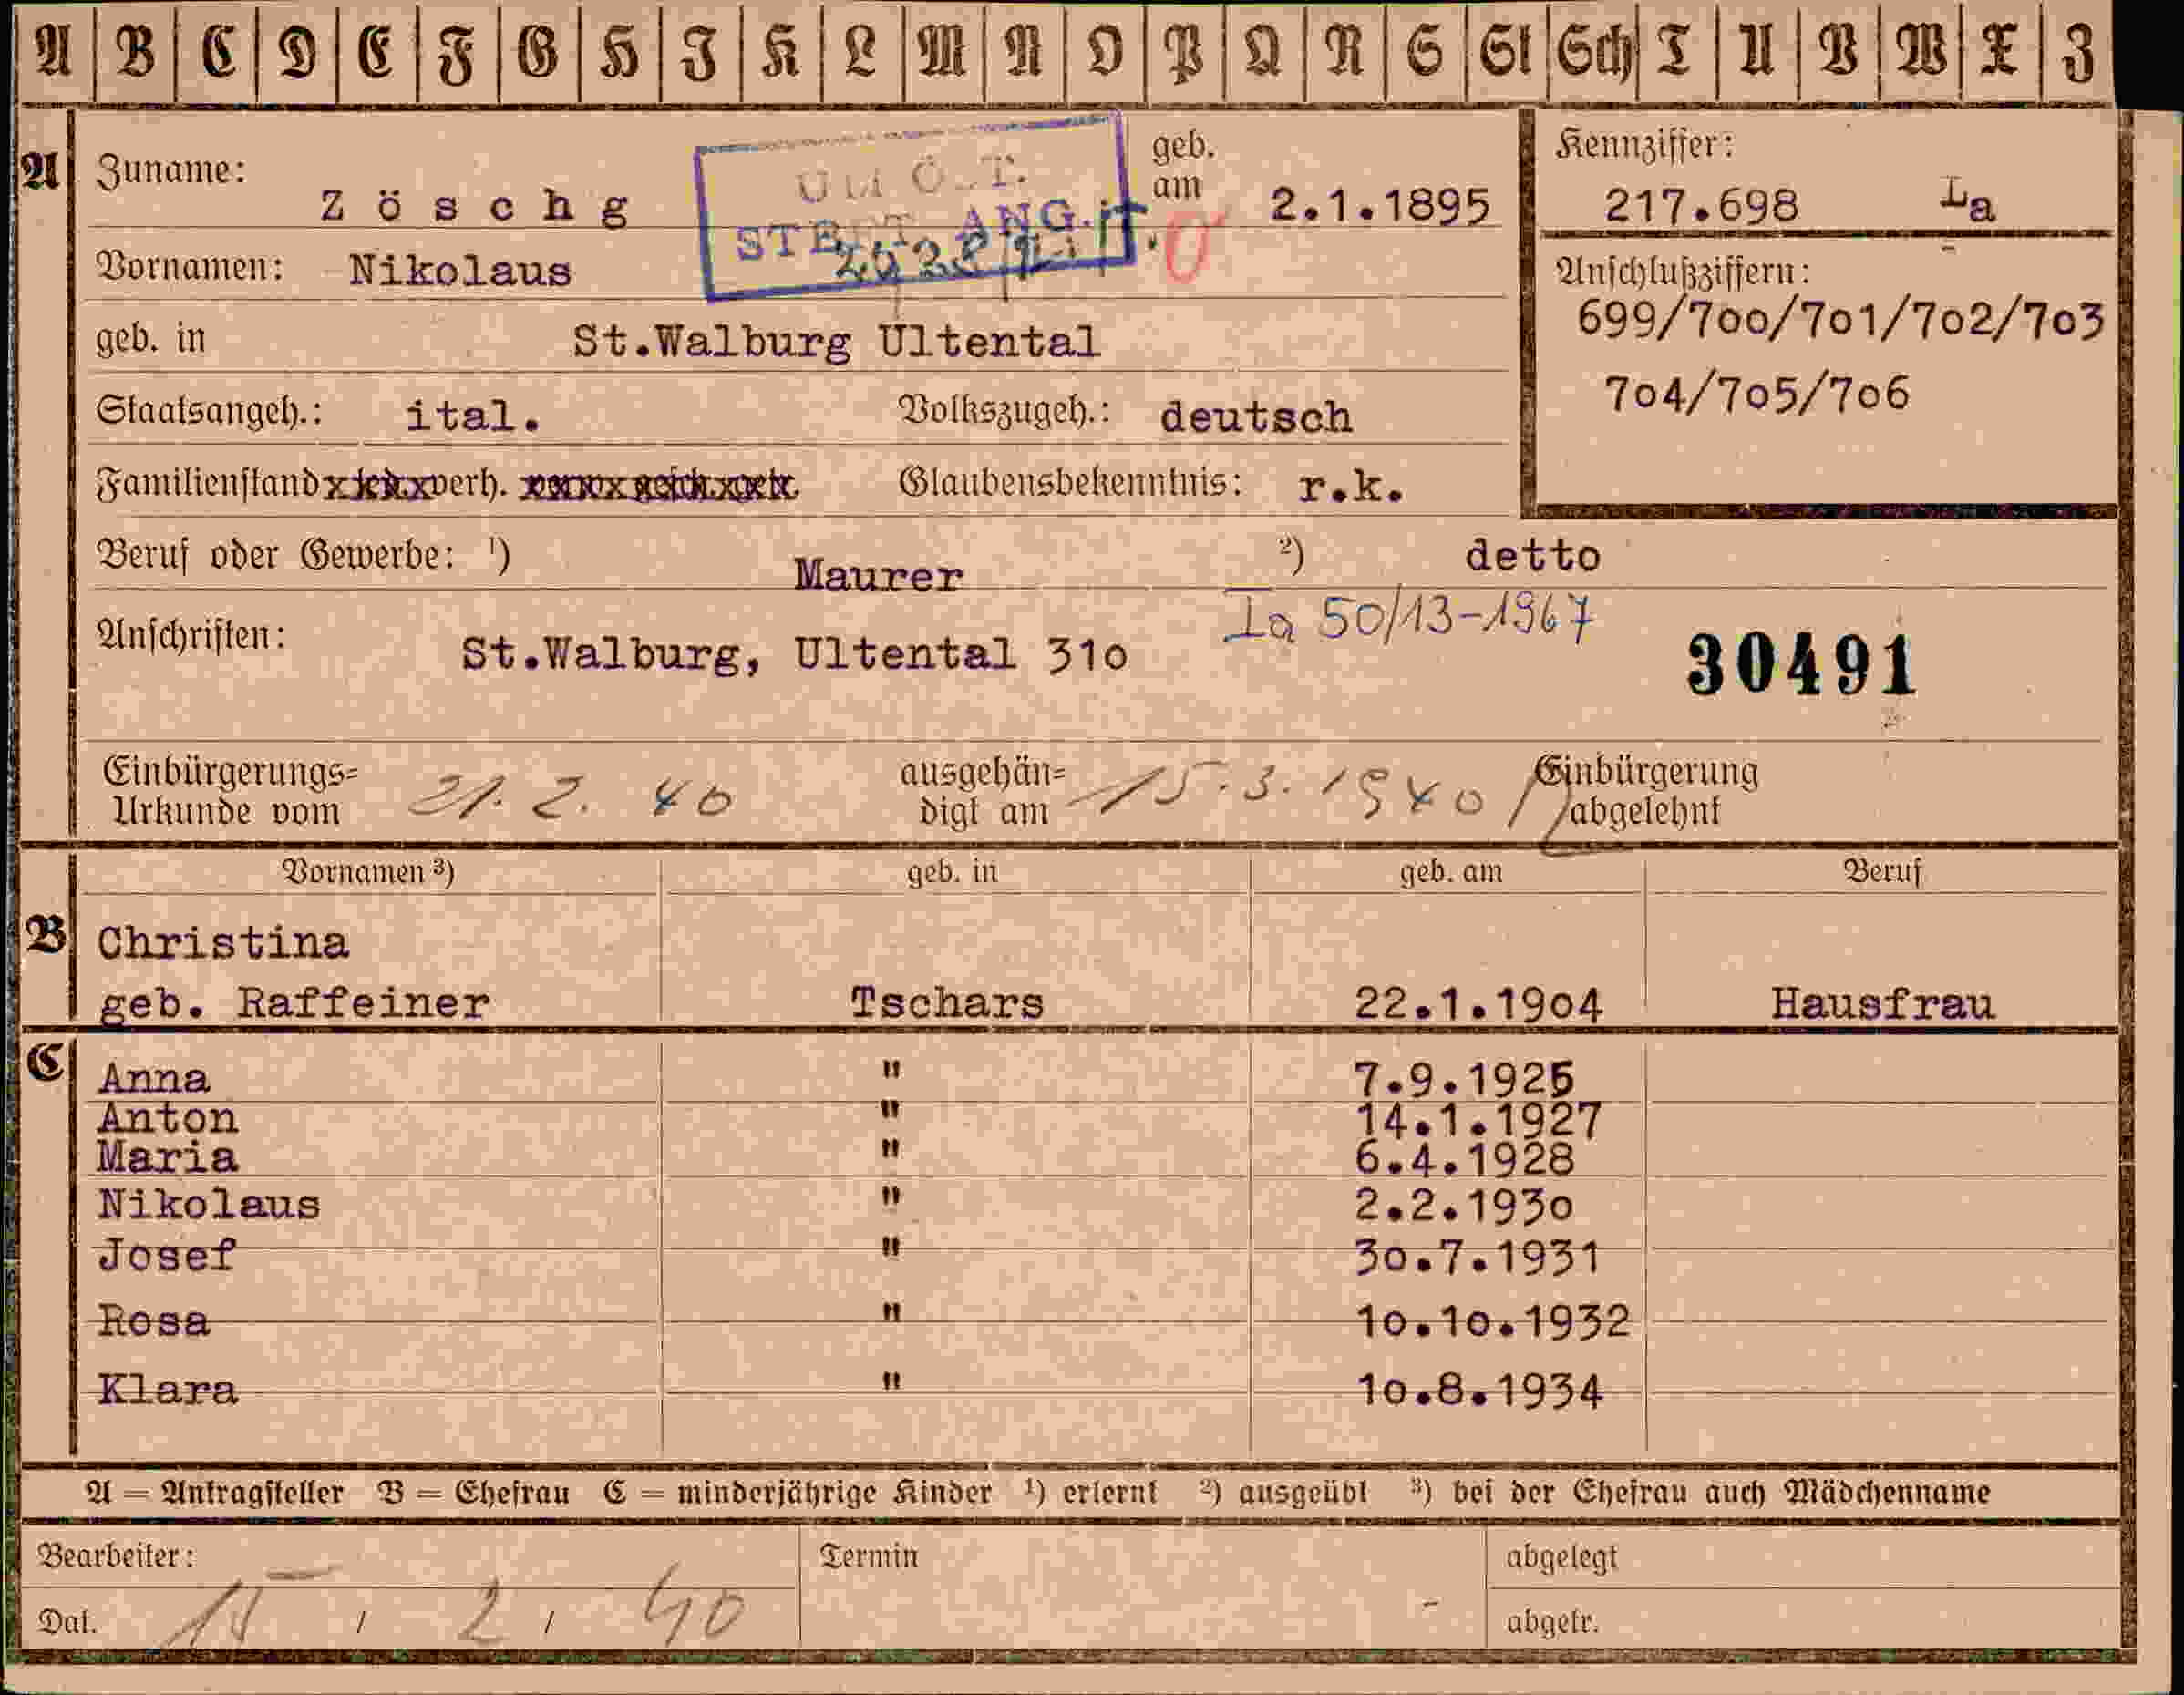 A B C D E F G H I K L M N O P Q R S St Sch T U V W X Z
A Zuname: Zöschg geb. am 2.1.1895
Kennziffer: 217.698 La
STE ANG.
Vornamen: Nikolaus
Anschlußziffern:
699/700/701/702/703
704/705/706
geb. in St.Walburg Ultental
Staatsangeh.: ital. Volkszugeh.: deutsch
Familienstand verh. Glaubensbekenntnis: r.k.
Beruf oder Gewerbe: ¹) Maurer ²) detto
Ia 50/13-1967
Anschriften: St.Walburg, Ultental 310
30491
Einbürgerungs= Urkunde vom 21.2.40 ausgehän= digt am 15.3.1940 Einbürgerung abgelehnt
Vornamen ³) geb. in geb. am Beruf
B Christina
geb. Raffeiner Tschars 22.1.1904 Hausfrau
C Anna " 7.9.1925
Anton " 14.1.1927
Maria " 6.4.1928
Nikolaus " 2.2.1930
Josef " 30.7.1931
Rosa " 10.10.1932
Klara " 10.8.1934
A = Antragsteller B = Ehefrau C = minderjährige Kinder ¹) erlernt ²) ausgeübt ³) bei der Ehefrau auch Mädchenname
Bearbeiter: Termin abgelegt
Dat. 15 / 2 / 40 abgetr.